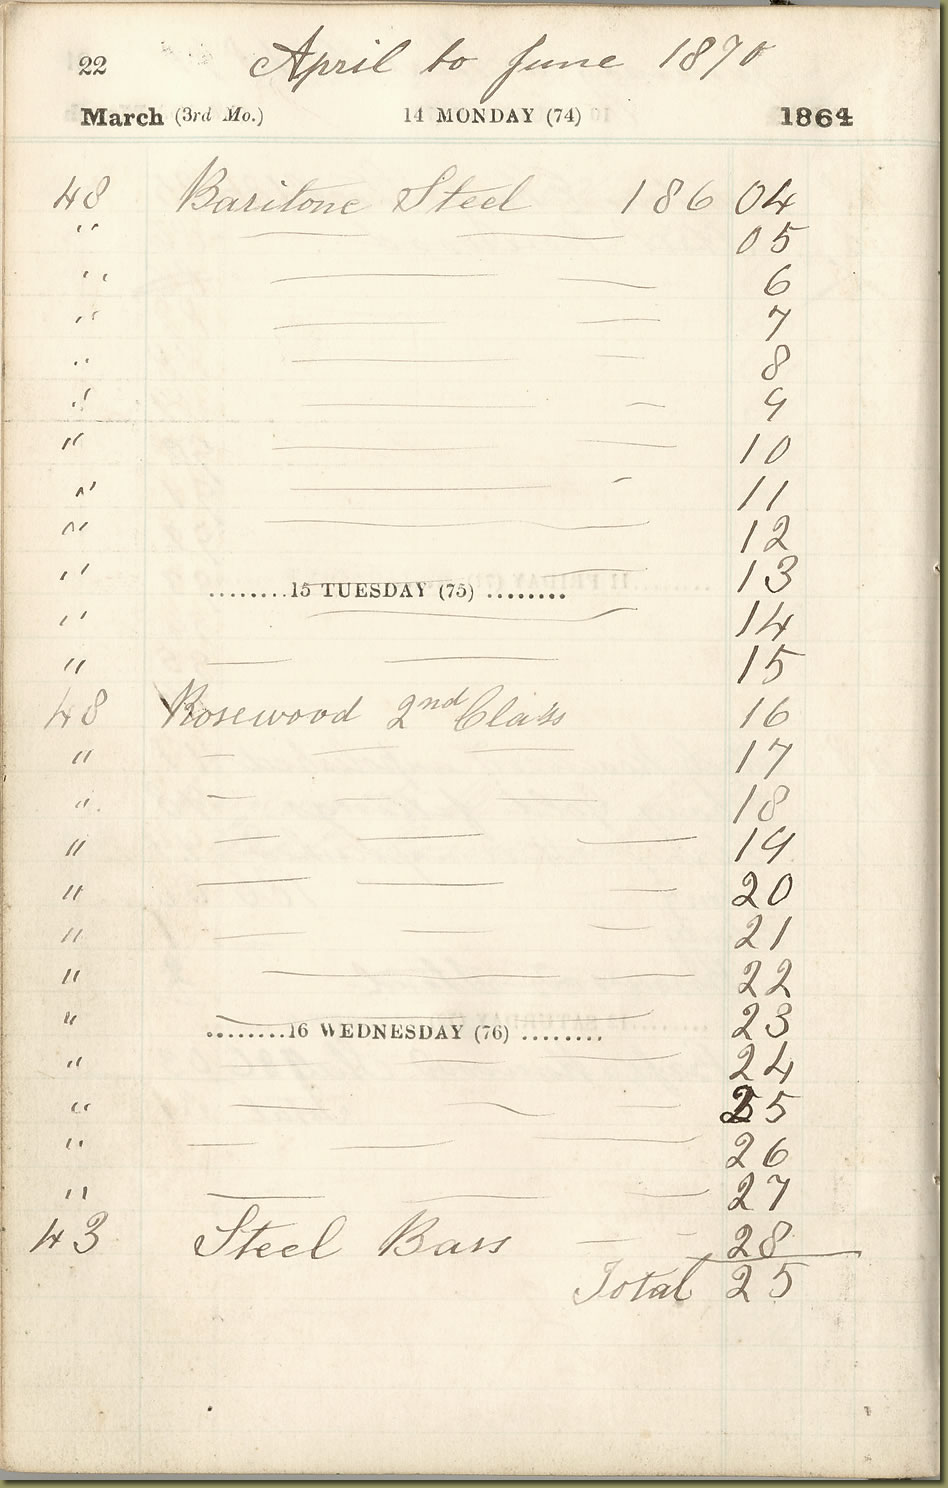 22 April to June 1870
March (3rd Mo.) 14 MONDAY (74) 1864
48 Baritone Steel 186 04
" 05
" 6
" 7
" 8
" 9
" 10
" 11
" 12
" 13
........15 TUESDAY (75) ........
" 14
" 15
48 Rosewood 2nd Class 16
" 17
" 18
" 19
" 20
" 21
" 22
" 23
........16 WEDNESDAY (76) ........
" 24
" 25
" 26
" 27
43 Steel Bass 28
Total 25